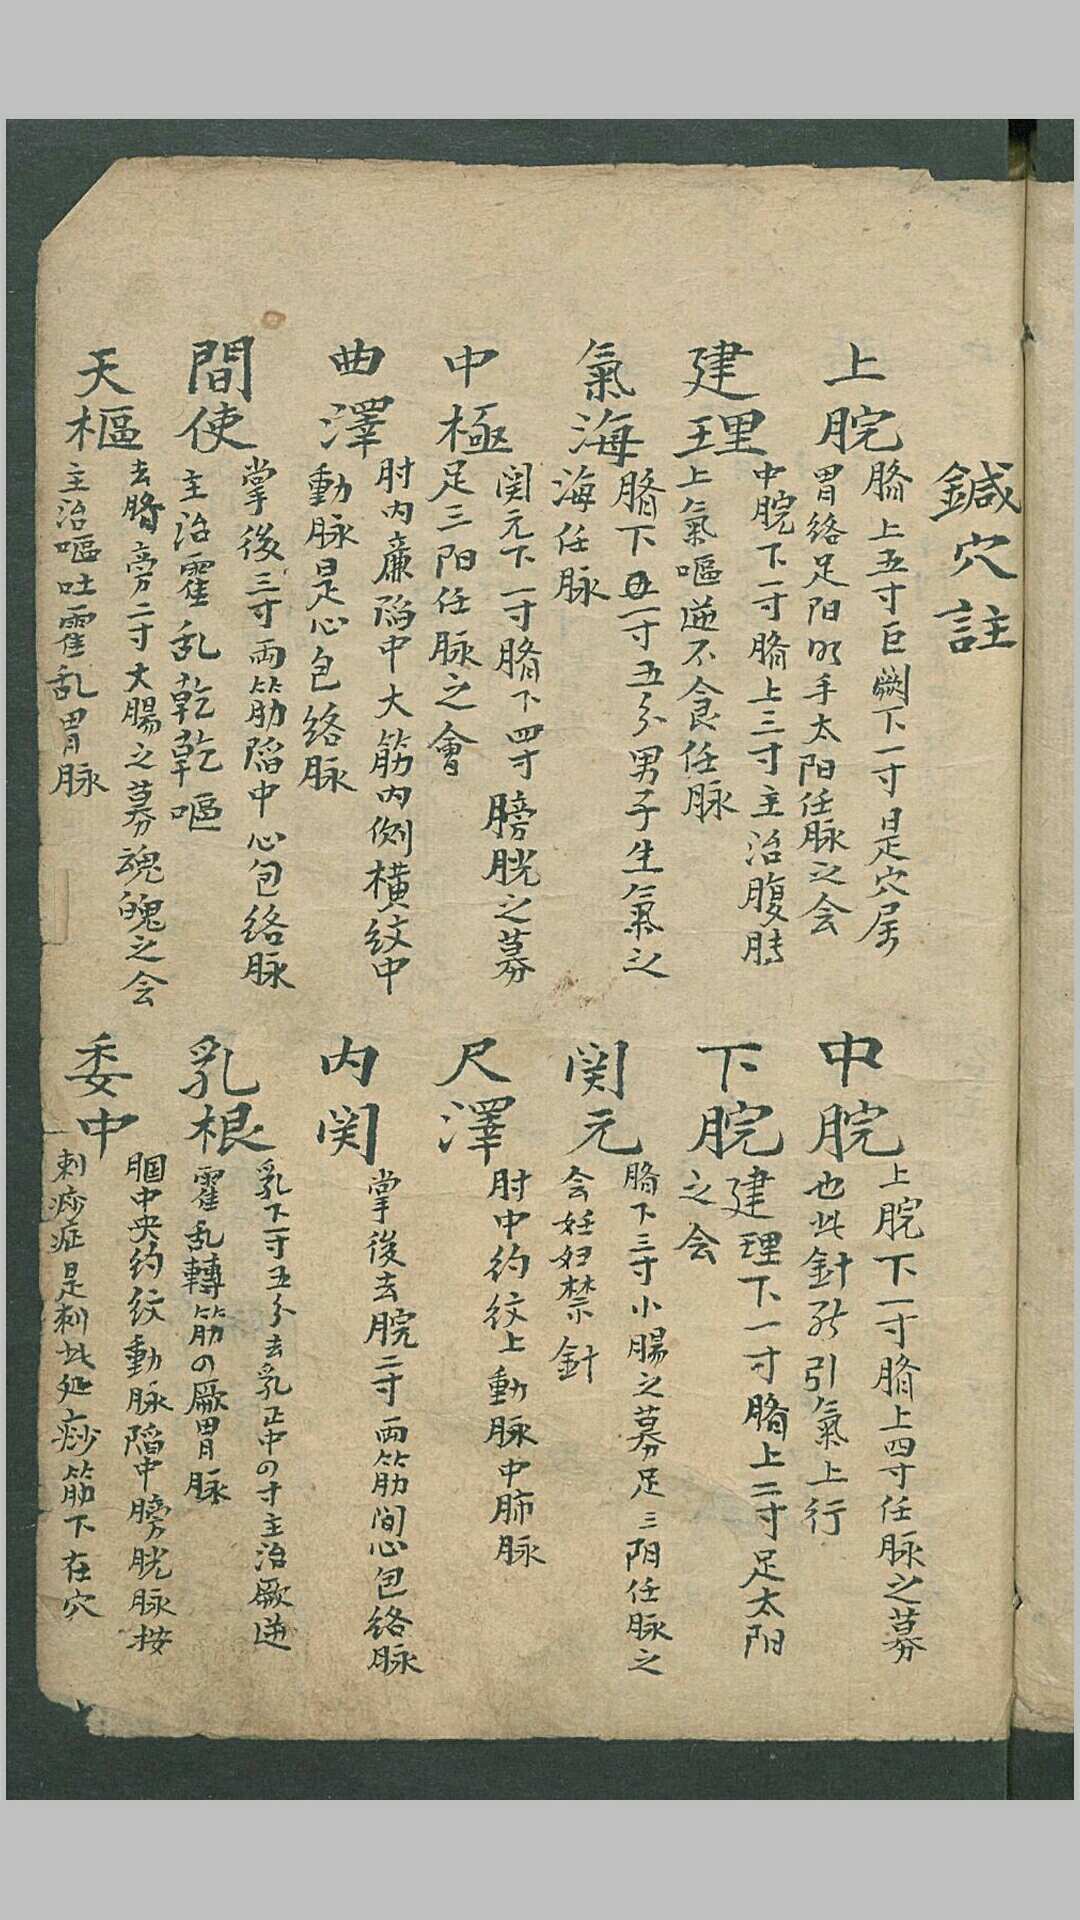 鍼穴註
上脘
臍上五寸巨闕下一寸是穴屬
胃絡足阳明手太阳任脉之会
中脘
上脘下一寸臍上四寸任脉之募
也此針能引氣上行
建理
中脘下一寸臍上三寸主治腹脹
上氣嘔逆不食任脉
下脘
建理下一寸臍上二寸足太阳
之会
氣海
臍下一寸五分男子生氣之
海任脉
関元
臍下三寸小腸之募足三阳任脉之
会妊妇禁針
中極
関元下一寸臍下四寸膀胱之募
足三阳任脉之會
尺澤
肘中约纹上動脉中肺脉
曲澤
肘内廉陷中大筋内侧横纹中
動脉是心包络脉
内関
掌後去脘二寸両筋间心包络脉
間使
掌後三寸両筋陷中心包络脉
主治霍乱乾乾嘔
乳根
乳下一寸五分去乳正中の寸主治厥逆
霍乱轉筋の厥胃脉
天樞
去臍旁二寸大腸之募魂魄之会
主治嘔吐霍乱胃脉
委中
腘中央约纹動脉陷中膀胱脉按
刺痧症是刺此处痧筋下在穴